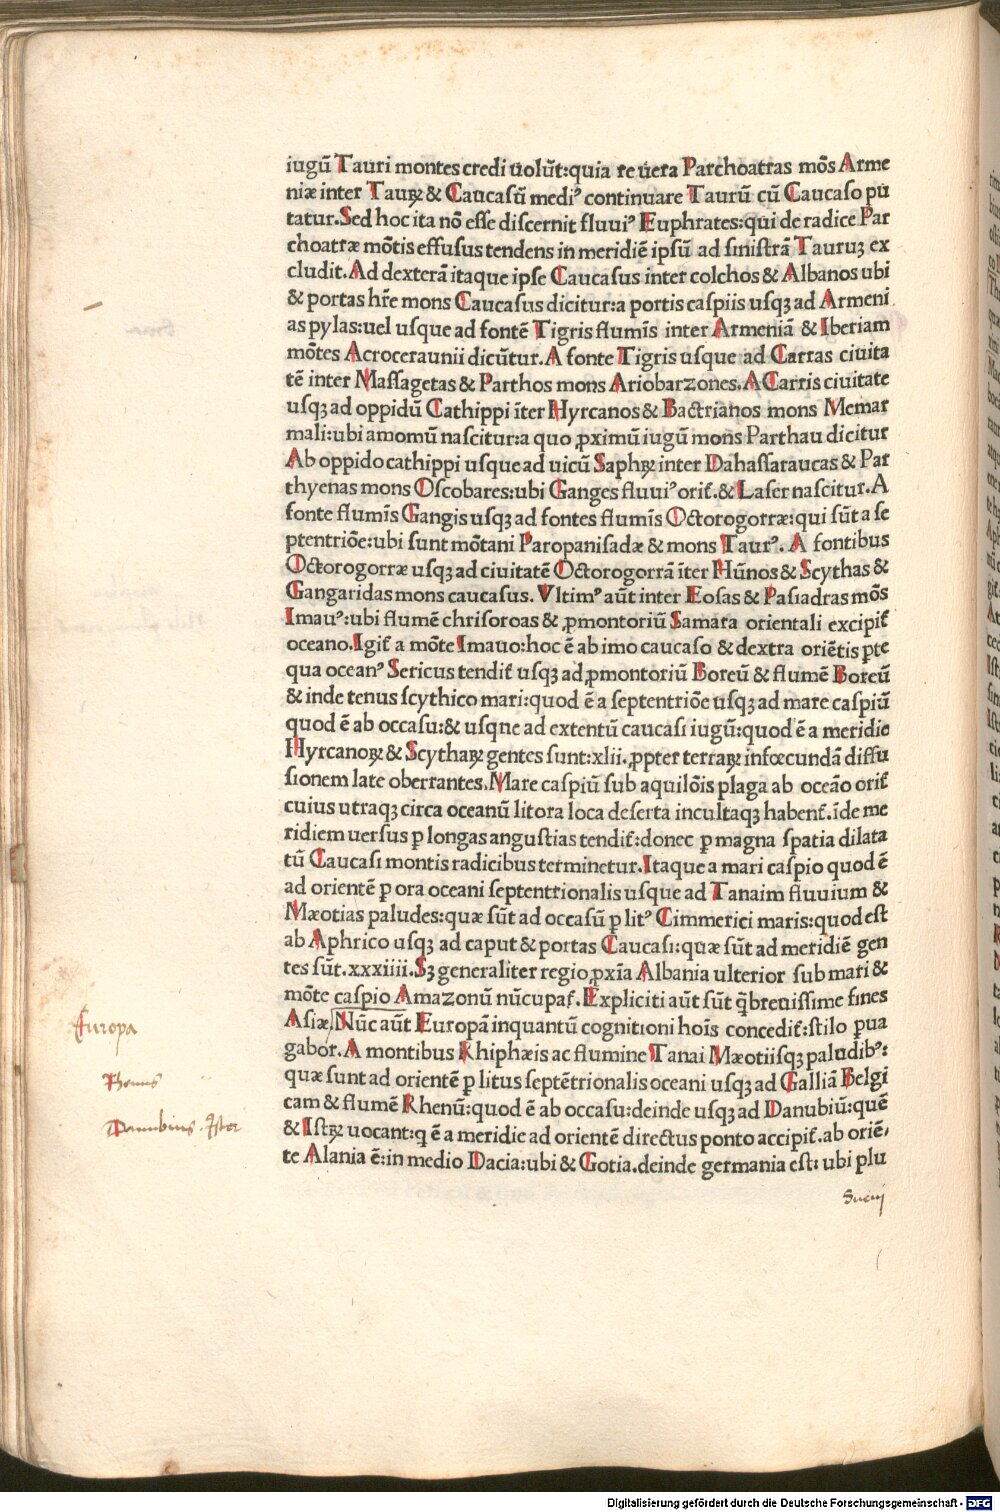 iugū Tauri montes credi uolūt:quia re uera Parchoatras mōs Arme
niæ inter Tauꝝ & Caucasū mediꝰ continuare Taurū cū Caucaso pu
tatur.Sed hoc ita nō esse discernit fluuiꝰ Euphrates:qui de radice Par
choatræ mōtis effusus tendens in meridiē ipsū ad sinistrā Tauruꝫ ex
cludit.Ad dexterā itaque ipse Caucasus inter colchos & Albanos ubi
& portas hr̄e mons Caucasus dicitur:a portis caspiis usqꝫ ad Armeni
as pylas:uel usque ad fontē Tigris flumīs inter Armeniā & Iberiam
mōtes Acroceraunii dicūtur.A fonte Tigris usque ad Carras ciuita
tē inter Massagetas & Parthos mons Ariobarzones.A Carris ciuitate
usqꝫ ad oppidū Cathippi īter Hyrcanos & Bactrianos mons Memar
mali:ubi amomū nascitur:a quo ꝓximū iugū mons Parthau dicitur
Ab oppido cathippi usque ad uicū Saphꝝ inter Dahassaraucas & Par
thyenas mons Oscobares:ubi Ganges fluuiꝰ orit̄.& Laser nascitur.A
fonte flumīs Gangis usqꝫ ad fontes flumīs Octorogorræ:qui sūt a se
ptentriōe:ubi sunt mōtani Paropanisadæ & mons Taurꝰ. A fontibus
Octorogorræ usqꝫ ad ciuitatē Octorogorrā īter Hūnos & Scythas &
Gangaridas mons caucasus. Vltimꝰ aūt inter Eosas & Pasiadras mōs
Imauꝰ:ubi flumē chrisoroas & ꝓmontoriū Samara orientali excipit̄
oceano.Igit̄ a mōte Imauo:hoc ē ab imo caucaso & dextra oriētis ꝑte
qua oceanꝰ Sericus tendit̄ usqꝫ ad ꝓmontoriū Boreū & flumē Boreū
& inde tenus scythico mari:quod ē a septentriōe usqꝫ ad mare caspiū
quod ē ab occasu:& usqne ad extentū caucasi iugū:quod ē a meridie
Hyrcanoꝝ & Scythaꝝ gentes sunt:xlii.ꝓpter terraꝝ infœcundā diffu
sionem late oberrantes.Mare caspiū sub aquilōis plaga ab oceāo orit̄
cuius utraqꝫ circa oceanū litora loca deserta incultaqꝫ habent̄.īde me
ridiem uersus ꝑ longas angustias tendit̄:donec ꝑ magna spatia dilata
tū Caucasi montis radicibus terminetur.Itaque a mari caspio quod ē
ad orientē ꝑ ora oceani septentrionalis usque ad Tanaim fluuium &
Mæotias paludes:quæ sūt ad occasū ꝑ litꝰ Cimmerici maris:quod est
ab Aphrico usqꝫ ad caput & portas Caucasi:quæ sūt ad meridiē gen
tes sūt.xxxiiii.Sꝫ generaliter regio ꝓxīa Albania ulterior sub mari &
mōte caspio Amazonū nūcupat̄. Expliciti aūt sūt q̄breuissime fines
Asiæ.Nūc aūt Europā inquantū cognitioni hoīs concedit̄:stilo ꝑua
gabor.A montibus Rhiphæis ac flumine Tanai Mæotiisqꝫ paludibꝰ:
quæ sunt ad orientē ꝑ litus septētrionalis oceani usqꝫ ad Galliā Belgi
cam & flumē Rhenū:quod ē ab occasu:deinde usqꝫ ad Danubiū:quē
& Istꝝ uocant:q ē a meridie ad orientē directus ponto accipit̄.ab oriē,
te Alania ē:in medio Dacia:ubi & Gotia.deinde germania est: ubi plu
Europa
Rhenus
Danubius . Ister
Sueuij
Digitalisierung gefördert durch die Deutsche Forschungsgemeinschaft - DFG